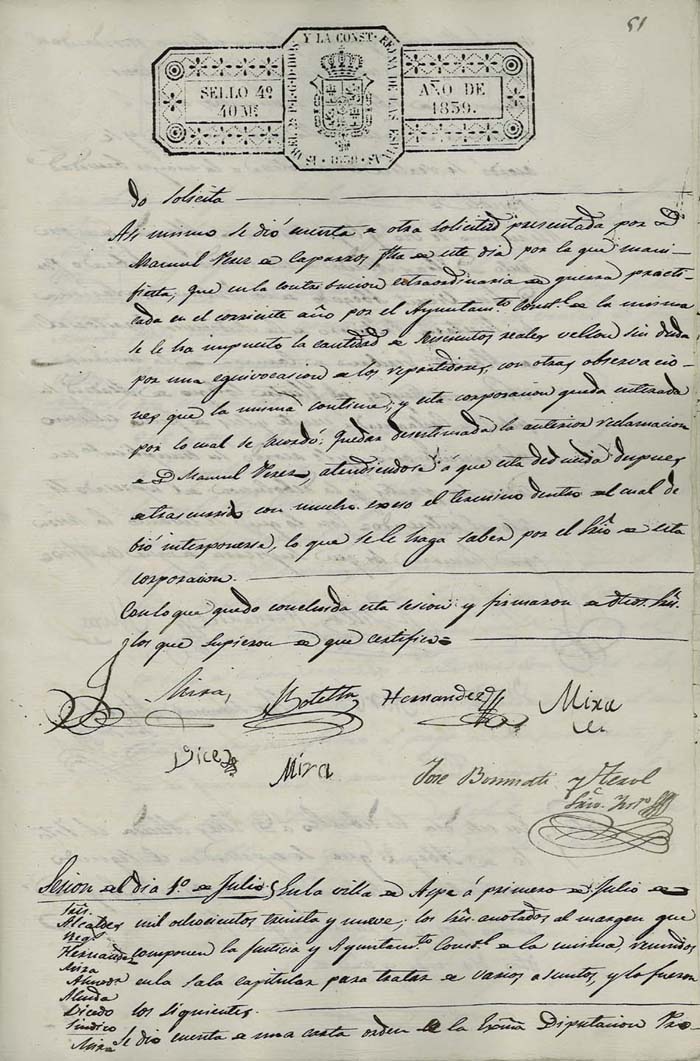 51
ISABEL 2ª P. L. G. D. DIOS Y LA CONST. REYNA DE LAS ESPAÑAS
SELLO 4º
40 Ms.
AÑO DE
1839.
1839
do solicita
Asi mismo se dió cuenta de otra solicitud presentada por Dn.
Manuel Perez de Caparros fha de este dia, por la que mani-
fiesta, que en la contribucion extraordinaria de guerra practi-
cada en el corriente año por el Ayuntamto. Constl. de la misma
se le ha impuesto la cantidad de seiscientos reales vellon sin duda
por una equivocasion de los repartidores, con otras observacio-
nes que la misma contiene, y esta corporacion queda enterada
por lo cual se acordó: Quedar desestimada la anterior reclamacion
de D. Manuel Perez, atendiendose á que esta deducida despues
de trascurrido con mucho exeso el termino dentro del cual de
bió interponerse, lo que se le haga saber por el Srio de esta
corporacion.
Con lo que quedo concluida esta sesion y firmaron de dhos. Sres.
los que supieron de que certifico=
Mira, Botella Hernandez Mira
Dicedo Mira
Jose Bonmati y Terol
Srio.
Sesion del dia 1º de Julio, En la villa de Aspe á primero de Julio de
Sres.
Alcaldes mil ochocientos treinta y nueve; los Sres. anotados al margen que
Reg.
Hernandez componen la Justicia y Ayuntamto. Constl. de la misma, reunidos
Mira
Almodr en la sala capitular para tratar de varios asuntos, y lo fueron
Dicedo los siguientes.
Sindico
Mira Se dio cuenta de una carta orden de la Exma Diputacion Pro